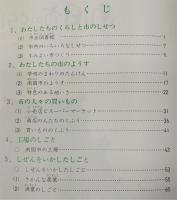 もくじ
1. わたしたちのくらしと市のしせつ
(1) 市立図書館 1
(2) 市内のいろいろなしせつ 7
2. わたしたちの市のようす
(1) 学校のまわりのたんけん 11
(2) 南国市のようす 17
(3) 特色のある地いき 22
3. 市の人々の買いもの
(1) 小売店とスーパーマーケット 31
(2) 商店の人たちのくふう 36
(3) 買いもののくふう 41
4. 工場のしごと
(1) 南国市の工場 43
5. しぜんをいかしたしごと
(1) しぜんをいかしたしごと 53
(2) さかんな農業 55
(3) 農業のしごと 60